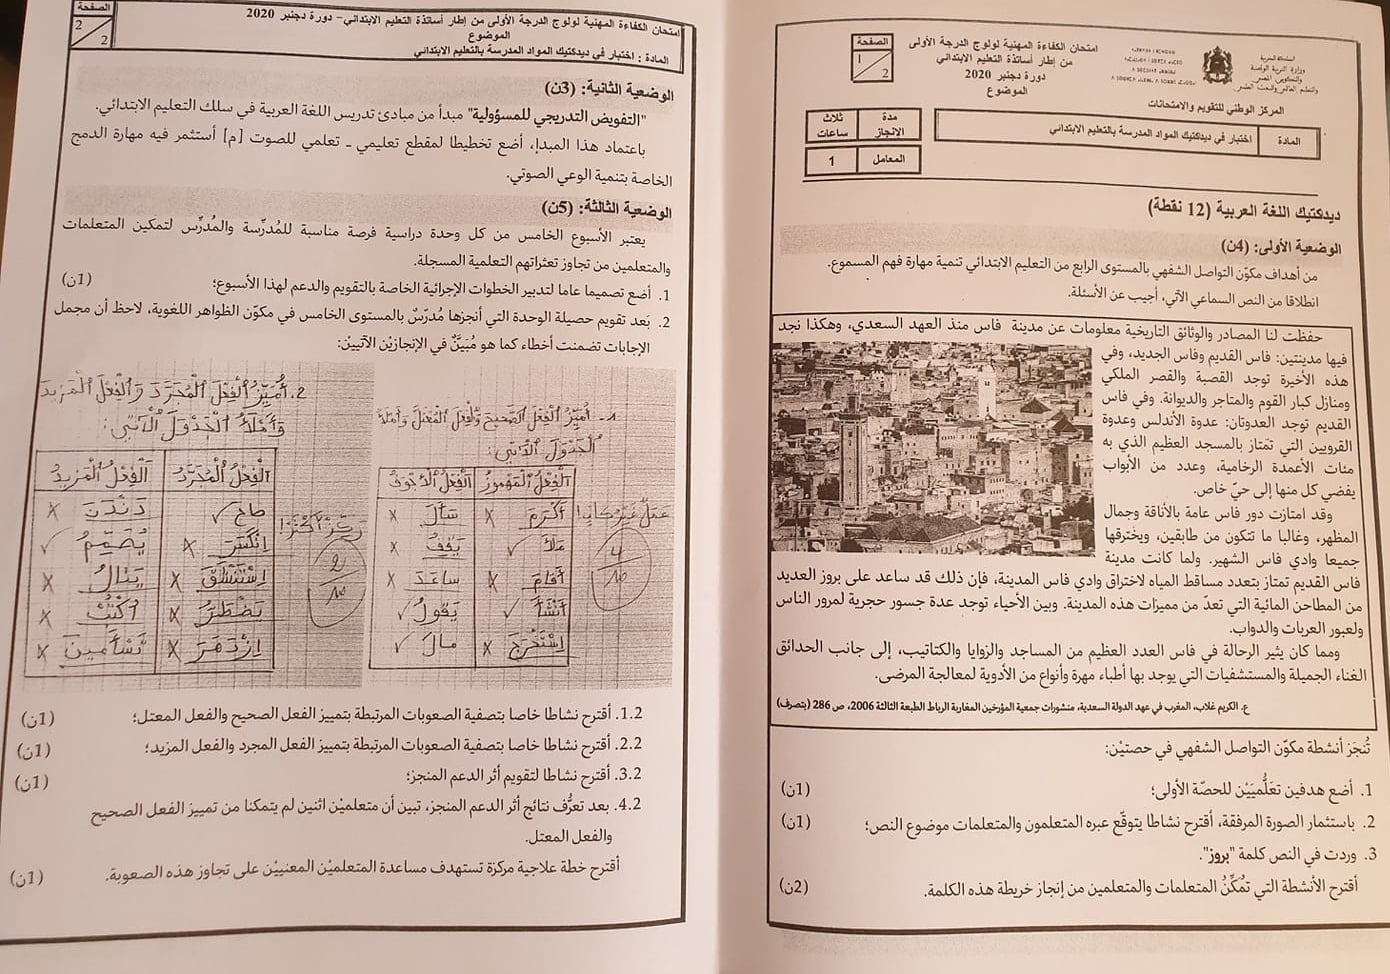 المملكة المغربية
وزارة التربية الوطنية
والتكوين المهني
والتعليم العالي والبحث العلمي
امتحان الكفاءة المهنية لولوج الدرجة الأولى
من إطار أساتذة التعليم الابتدائي
دورة دجنبر 2020
الموضوع
الصفحة
1
2
المركز الوطني للتقويم والامتحانات
المادة
اختبار في ديدكتيك المواد المدرسة بالتعليم الابتدائي
مدة الانجاز
ثلاث ساعات
المعامل
1
ديدكتيك اللغة العربية (12 نقطة)
الوضعية الأولى: (4ن)
من أهداف مكوّن التواصل الشفهي بالمستوى الرابع من التعليم الابتدائي تنمية مهارة فهم المسموع.
انطلاقا من النص السماعي الآتي، أجيب عن الأسئلة.
حفظت لنا المصادر والوثائق التاريخية معلومات عن مدينة فاس منذ العهد السعدي، وهكذا نجد
فيها مدينتين: فاس القديم وفاس الجديد، وفي
هذه الأخيرة توجد القصبة والقصر الملكي
ومنازل كبار القوم والمتاجر والديوانة. وفي فاس
القديم توجد العدوتان: عدوة الأندلس وعدوة
القرويين التي تمتاز بالمسجد العظيم الذي به
مئات الأعمدة الرخامية، وعدد من الأبواب
يفضي كل منها إلى حيّ خاص.
وقد امتازت دور فاس عامة بالأناقة وجمال
المظهر، وغالبا ما تتكون من طابقين، ويخترقها
جميعا وادي فاس الشهير. ولما كانت مدينة
فاس القديم تمتاز بتعدد مساقط المياه لاختراق وادي فاس المدينة، فإن ذلك قد ساعد على بروز العديد
من المطاحن المائية التي تعدّ من مميزات هذه المدينة. وبين الأحياء توجد عدة جسور حجرية لمرور الناس
ولعبور العربات والدواب.
ومما كان يثير الرحالة في فاس العدد العظيم من المساجد والزوايا والكتاتيب، إلى جانب الحدائق
الغناء الجميلة والمستشفيات التي يوجد بها أطباء مهرة وأنواع من الأدوية لمعالجة المرضى.
ع. الكريم غلاب، المغرب في عهد الدولة السعدية، منشورات جمعية المؤرخين المغاربة الرباط الطبعة الثالثة 2006، ص 286 (بتصرف)
تُنجَز أنشطة مكوّن التواصل الشفهي في حصتيْن:
1. أضع هدفين تعَلُّمِيَيْن للحصّة الأولى؛ (1ن)
2. باستثمار الصورة المرفقة، أقترح نشاطا يتوقّع عبره المتعلمون والمتعلمات موضوع النص؛ (1ن)
3. وردت في النص كلمة "بروز".
أقترح الأنشطة التي تُمَكِّنُ المتعلمات والمتعلمين من إنجاز خريطة هذه الكلمة. (2ن)
الصفحة
2
2
امتحان الكفاءة المهنية لولوج الدرجة الأولى من إطار أساتذة التعليم الابتدائي– دورة دجنبر 2020
الموضوع
المادة : اختبار في ديدكتيك المواد المدرسة بالتعليم الابتدائي
الوضعية الثانية: (3ن)
"التفويض التدريجي للمسؤولية" مبدأ من مبادئ تدريس اللغة العربية في سلك التعليم الابتدائي.
باعتماد هذا المبدإ، أضع تخطيطا لمقطع تعليمي ـ تعلمي للصوت [م] أستثمر فيه مهارة الدمج
الخاصة بتنمية الوعي الصوتي.
الوضعية الثالثة: (5ن)
يعتبر الأسبوع الخامس من كل وحدة دراسية فرصة مناسبة للمُدرِّسة والمُدرِّس لتمكين المتعلمات
والمتعلمين من تجاوز تعثراتهم التعلمية المسجلة.
1. أضع تصميما عاما لتدبير الخطوات الإجرائية الخاصة بالتقويم والدعم لهذا الأسبوع؛ (1ن)
2. بَعد تقويم حصيلة الوحدة التي أنجزها مُدرّسٌ بالمستوى الخامس في مكوّن الظواهر اللغوية، لاحظ أن مجمل
الإجابات تضمنت أخطاء كما هو مُبَيَّنٌ في الإنجازيْن الآتيين:
1- أُمَيِّزُ الْفِعْلَ الصَّحِيحَ وَالْفِعْلَ الْمُعْتَلَّ وَأَمْلَأُ
الْجَدْوَلَ الْآتِيَ:
اَلْفِعْلُ الْمَهْمُوزُ اَلْفِعْلُ الْأَجْوَفُ
أَكْرَمَ x سَأَلَ x
مَلَأَ ✓ يَقِفُ x
أَقَامَ x سَاعَدَ x
أَنْشَأَ ✓ يَقُولُ ✓
اِسْتَخْرَجَ x مَالَ ✓
4
10
2. أُمَيِّزُ الْفِعْلَ الْمُجَرَّدَ وَالْفِعْلَ الْمَزِيدَ
وَأَمْلَأُ الْجَدْوَلَ الْآتِيَ:
اَلْفِعْلُ الْمُجَرَّدُ اَلْفِعْلُ الْمَزِيدُ
صَاحَ ✓ دَنْدَنَ x
اِنْكَسَرَ x يُصَمِّمُ ✓
اِسْتَنْشَقَ x يَنَالُ x
يَضْطَرُّ x أَكْتُبُ x
اِزْدَهَرَ x x
رَكِّزْ أَكْثَرَ!
2
10
1.2. أقترح نشاطا خاصا بتصفية الصعوبات المرتبطة بتمييز الفعل الصحيح والفعل المعتل؛ (1ن)
2.2. أقترح نشاطا خاصا بتصفية الصعوبات المرتبطة بتمييز الفعل المجرد والفعل المزيد؛ (1ن)
3.2. أقترح نشاطا لتقويم أثر الدعم المنجز؛ (1ن)
4.2. بعد تعرُّف نتائج أثر الدعم المنجز، تبين أن متعلميْن اثنين لم يتمكنا من تمييز الفعل الصحيح
والفعل المعتل.
أقترح خطة علاجية مركزة تستهدف مساعدة المتعلميْن المعنييْن على تجاوز هذه الصعوبة. (1ن)